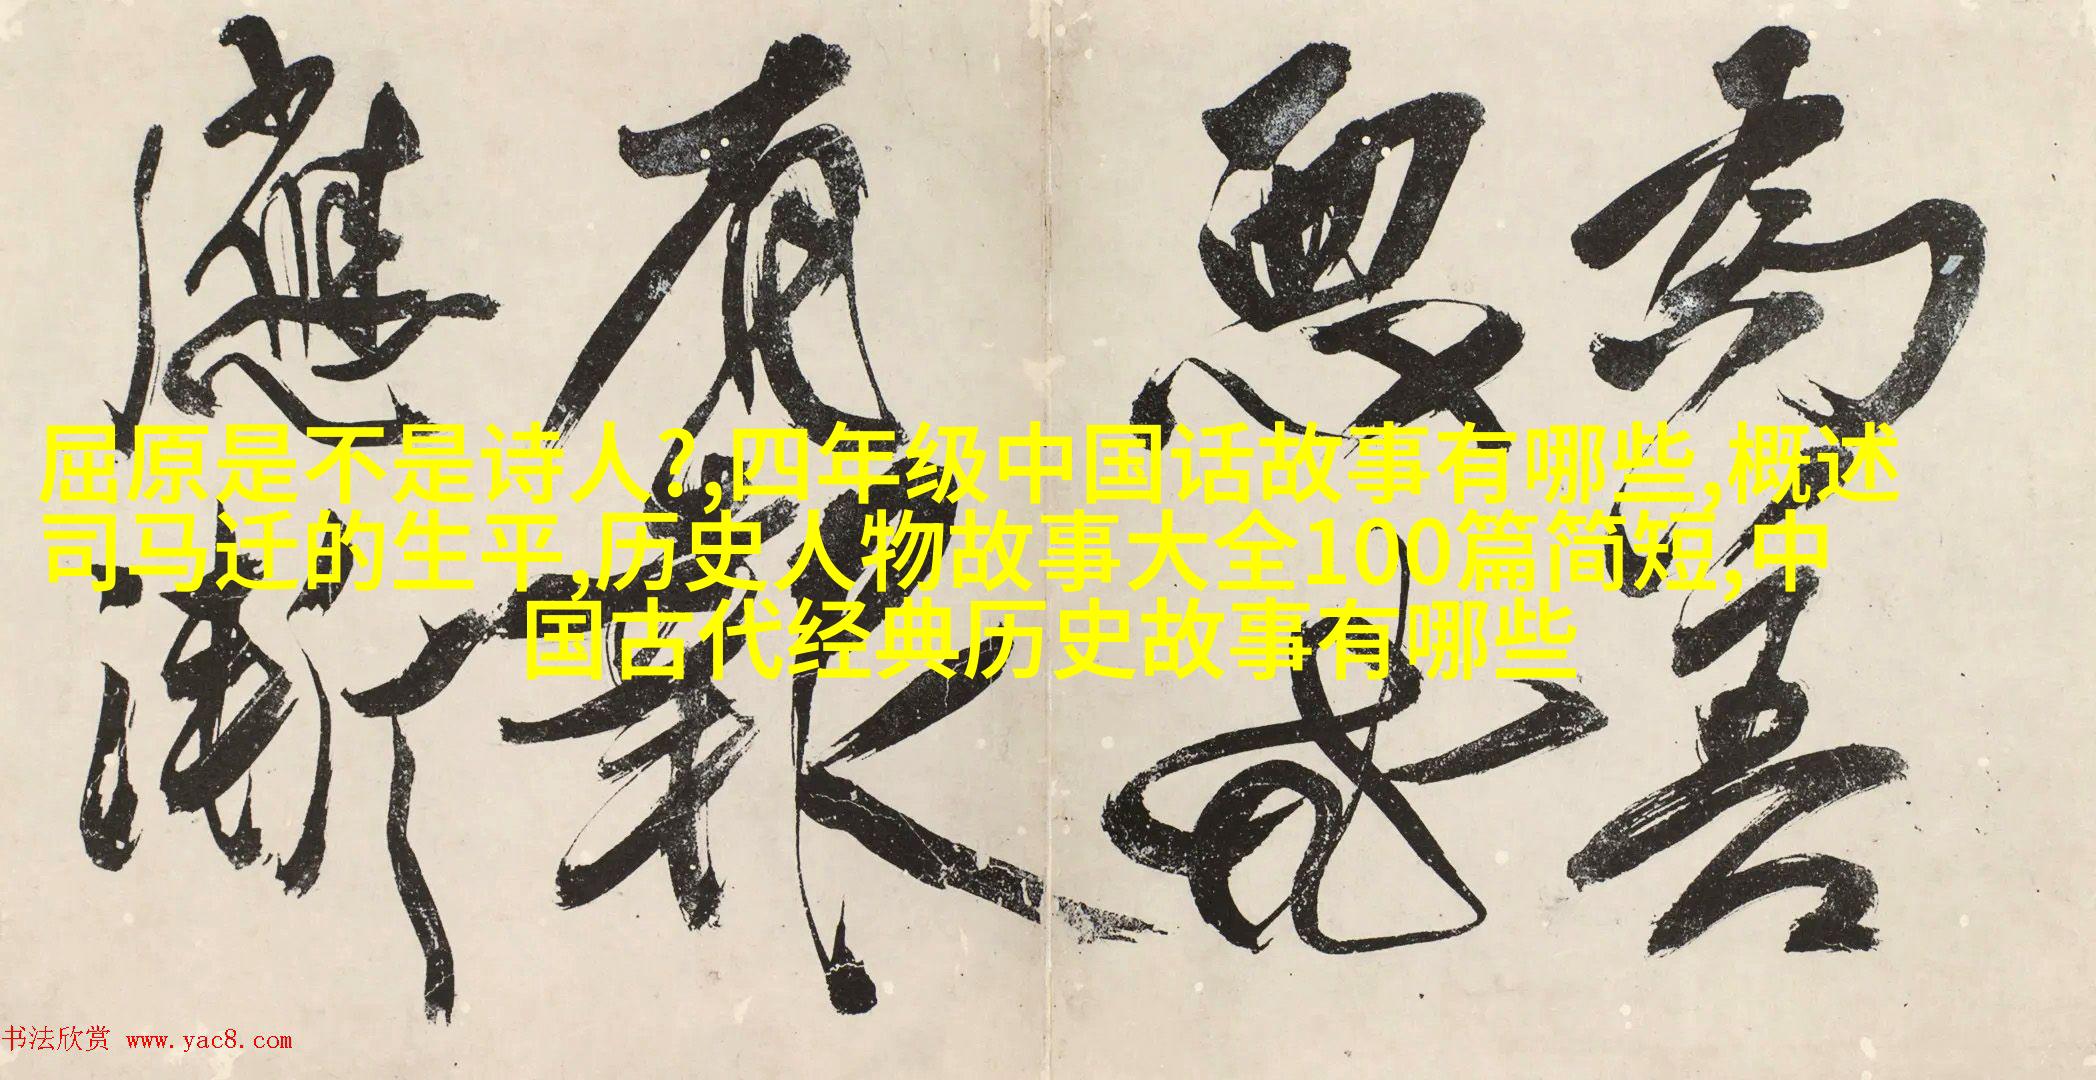 為善
悪或
有報
應漸
屈原是不是诗人?,四年级中国话故事有哪些,概述
司马迁的生平,历史人物故事大全100篇简短,中
国古代经典历史故事有哪些
书法欣赏 www.yac8.com